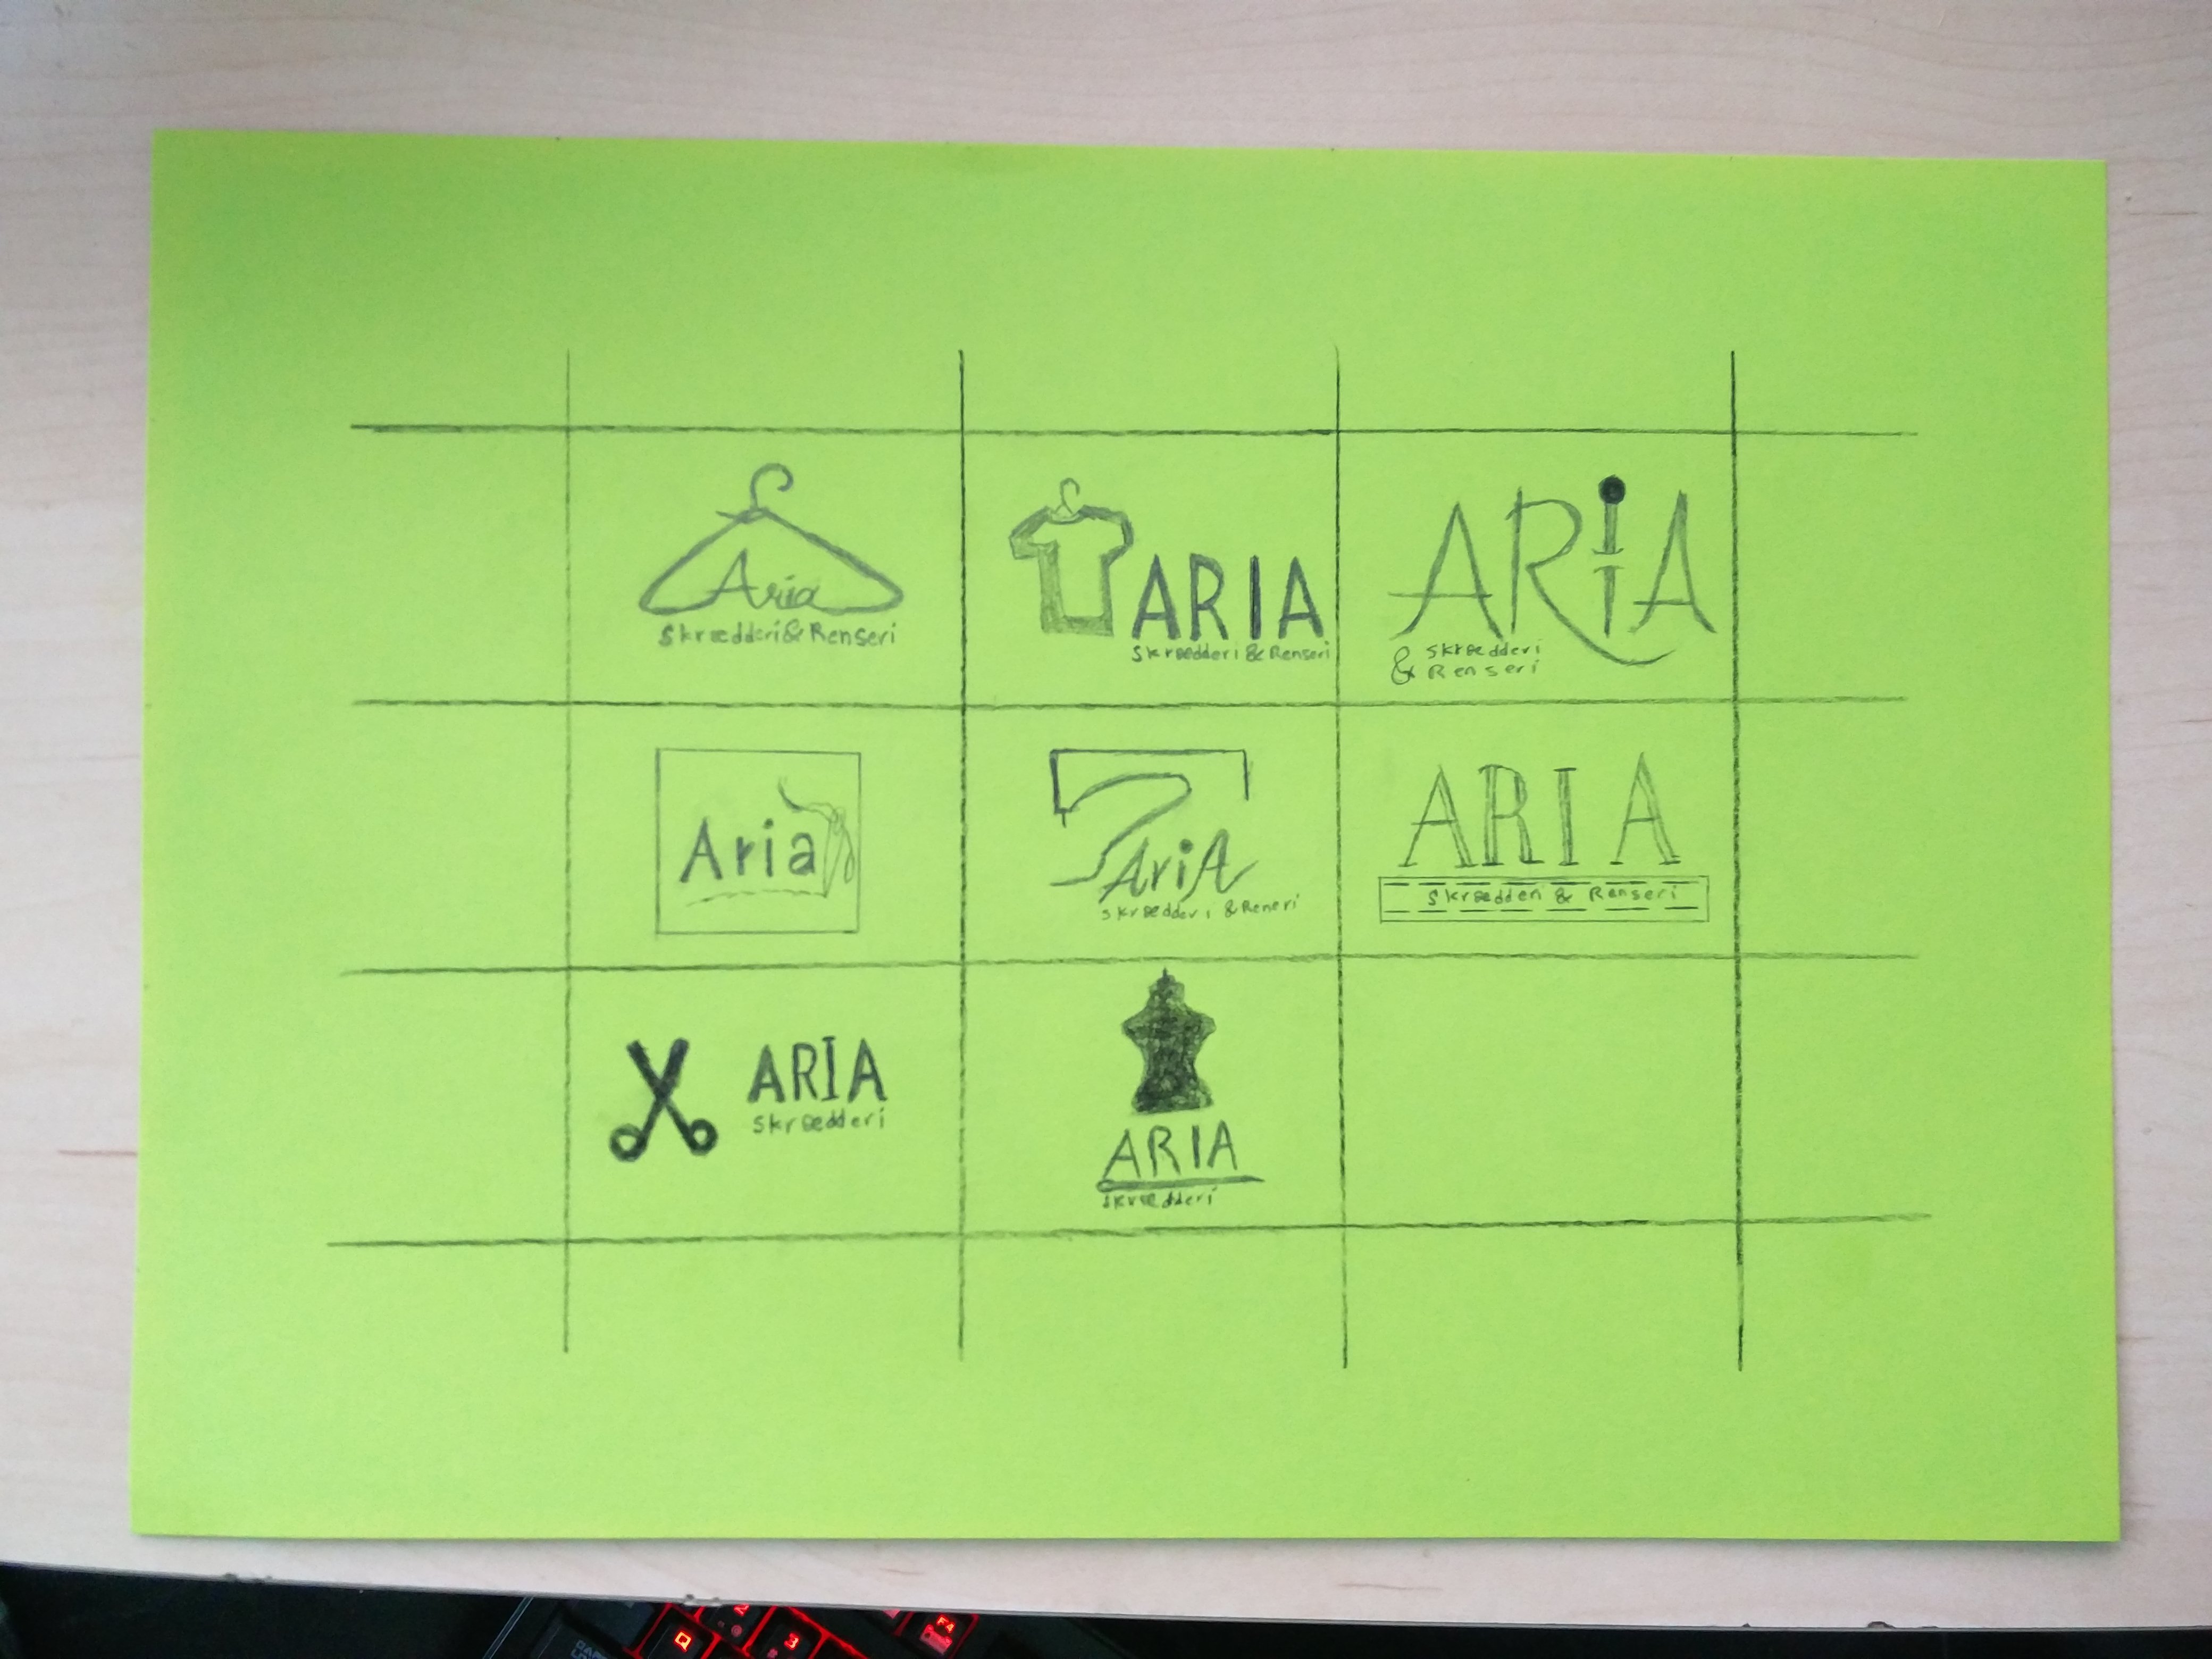 Aria
Skrædderi & Renseri
ARIA
Skrædderi & Renseri
ARiA
& Skrædderi
Renseri
Aria
AriA
Skrædderi & Reneri
ARIA
Skrædderi & Renseri
ARIA
Skrædderi
ARIA
Skrædderi
Q
2
3
F4